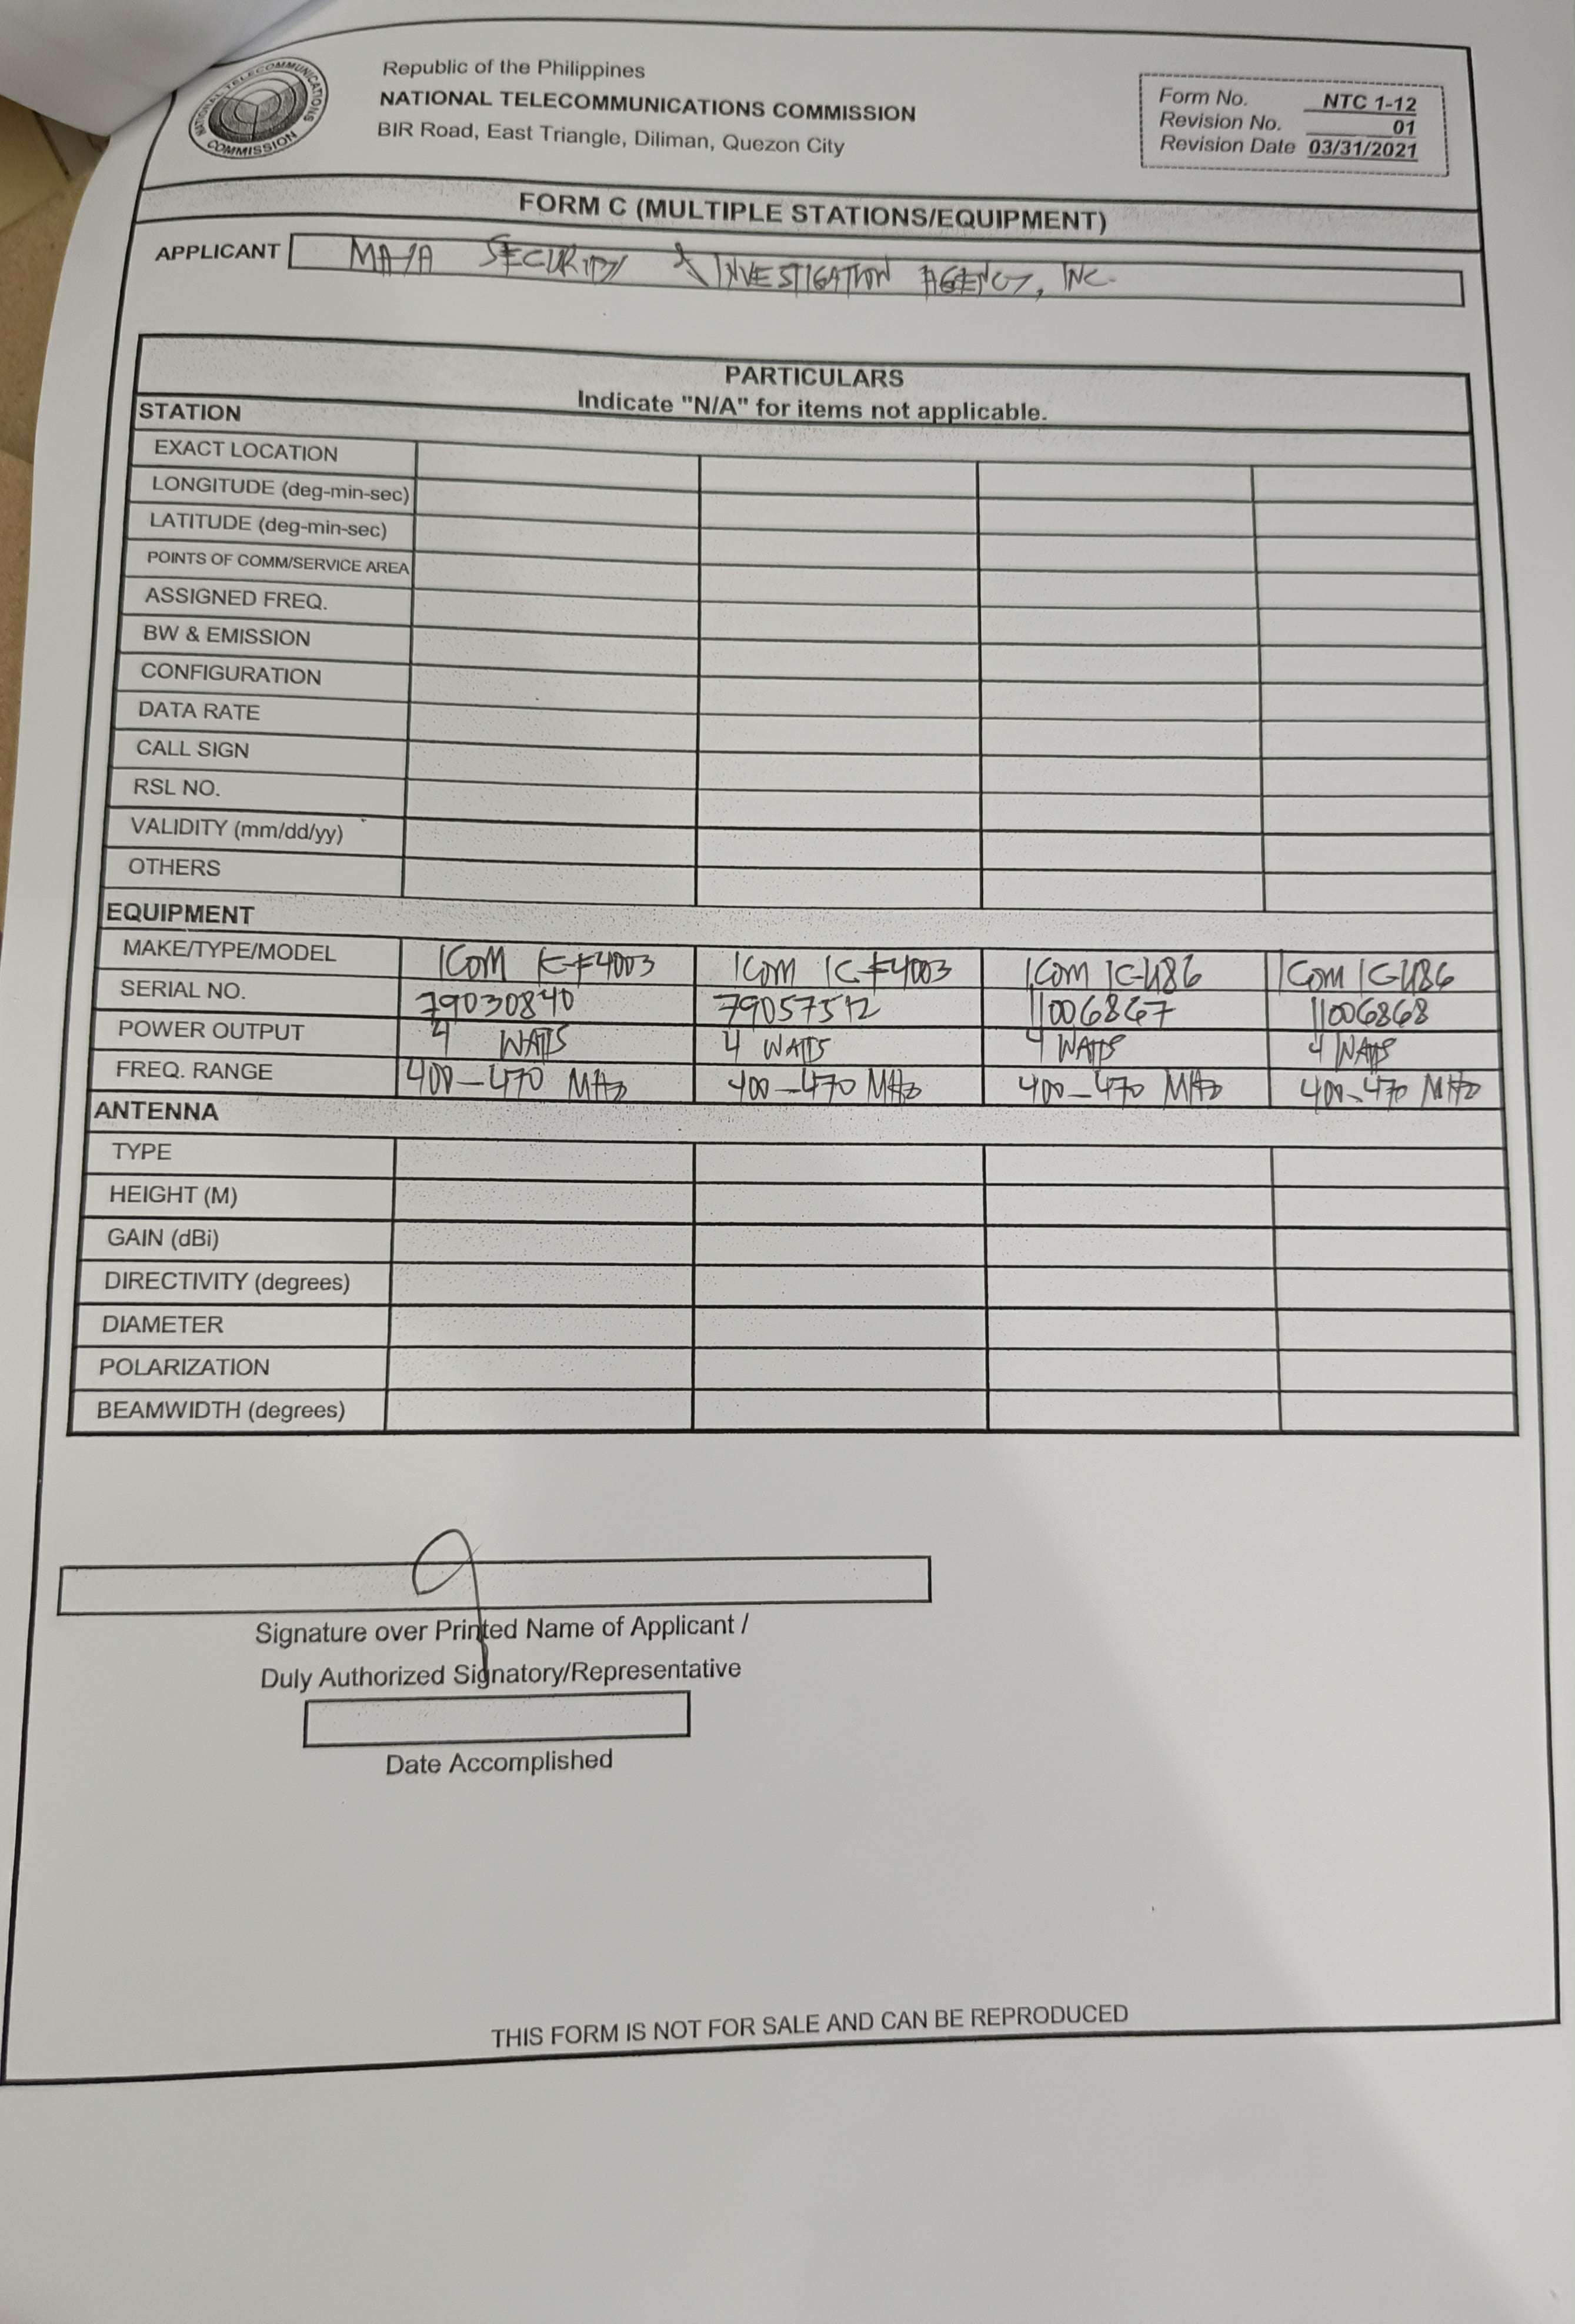 NATIONAL TELECOMMUNICATIONS COMMISSION
Republic of the Philippines
NATIONAL TELECOMMUNICATIONS COMMISSION
BIR Road, East Triangle, Diliman, Quezon City
Form No. NTC 1-12
Revision No. 01
Revision Date 03/31/2021
FORM C (MULTIPLE STATIONS/EQUIPMENT)
APPLICANT SECURITY & INVESTIGATION AGENCY, INC.
PARTICULARS
Indicate "N/A" for items not applicable.
STATION
EXACT LOCATION
LONGITUDE (deg-min-sec)
LATITUDE (deg-min-sec)
POINTS OF COMM/SERVICE AREA
ASSIGNED FREQ.
BW & EMISSION
CONFIGURATION
DATA RATE
CALL SIGN
RSL NO.
VALIDITY (mm/dd/yy)
OTHERS
EQUIPMENT
MAKE/TYPE/MODEL ICOM IC-F4003 ICOM IC-F4003 ICOM IC-U86 ICOM IC-U86
SERIAL NO. 79030840 79057512 11006867 11006868
POWER OUTPUT 4 WATTS 4 WATTS 4 WATTS 4 WATTS
FREQ. RANGE 400-470 MHz 400-470 MHz 400-470 MHz 400-470 MHz
ANTENNA
TYPE
HEIGHT (M)
GAIN (dBi)
DIRECTIVITY (degrees)
DIAMETER
POLARIZATION
BEAMWIDTH (degrees)
Signature over Printed Name of Applicant /
Duly Authorized Signatory/Representative
Date Accomplished
THIS FORM IS NOT FOR SALE AND CAN BE REPRODUCED